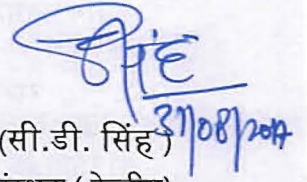 सिंह
31/08/2017
(सी.डी. सिंह)